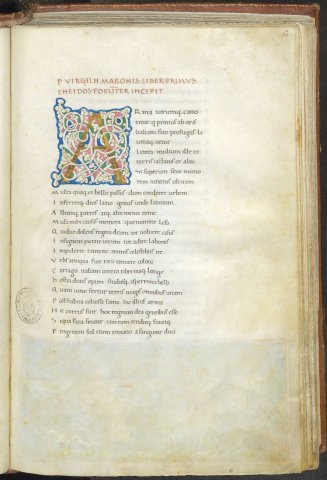 P VIRGILII MARONIS LIBER PRIMVS
ENEIDOS FOELITER INCIPIT
RMa uirumq; cano
troie q primus ab oris
Italiam fato profugus la
uinaq; uenit
Litora multum ille et
terris iactatus et alto
Vi superum seue memo
rem iunonis ob iram
Multa quoq; et bello passus dum conderet urbem
Inferretq; deos latio genus unde latinum
Albaniq; patres atq; alte menia rome
Musa mihi causas memora quo numine leso
Quidue dolens regina deum tot uoluere casus
Insignem pietate uirum tot adire labores
Impulerit tantene animis celestibus ire
Vrbs antiqua fuit tyrii tenuere coloni
Cartago italiam contra tyberinaq; longe
Hostia diues opum studiisq; asperrima belli
Quam iuno fertur terris magis omnibus unam
Posthabita coluisse samo hic illius arma
Hic currus fuit hoc regnum dea gentibus esse
Si qua fata sinant iam tum tenditq; fouetq;
Progeniem sed enim troiano a sanguine duci